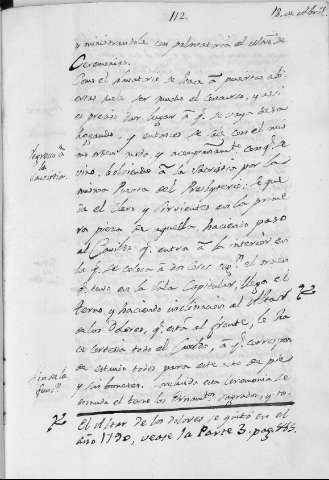 112.
12. de Abril
y ministrandola con palmatoria el colax.l de
Ceremonias.
Como el Donatorio se hace á puertas abi-
ertas suele ser mucho el concurso, y asi
es preciso dar lugar á q.e se vaya desa-
hogando, y entonces se sale con el mis-
mo orden, modo y acompañam.to con q.e se
vino, bolviendo á la Sacristia por la
misma Puerta del Presbyterio: Se que-
da el Clero y Sirvientes en la prime-
ra pieza de aquella, haciendo paso
al Cavildo q.e entra á la interior en
la q.e se coloca á dos Coros seg.n el orden
q.e tuvo en la Sala Capitular, llega el
Terno y haciendo inclinacion al Altar
de los Dolores, q.e está al frente, le ha-
ce cortesia todo el Cavildo, á q.e correspon-
de estando todos para este acto de pie
y sin bonetes. Concluida esta ceremonia se
desnuda el terno los Ornam.tos sagrados, y to-
Regreso á
la
Sacristia.
Fin de la
func.n
El Altar de los dolores se quitó en el
año 1790, vease la Parte 3. pag. 445.